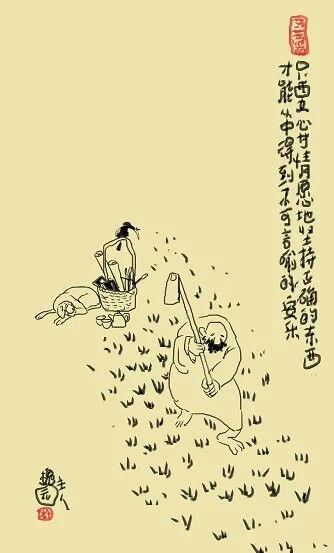 只心甘情愿地坚持正确的东西
才能从中得到不可言喻的安乐
主人